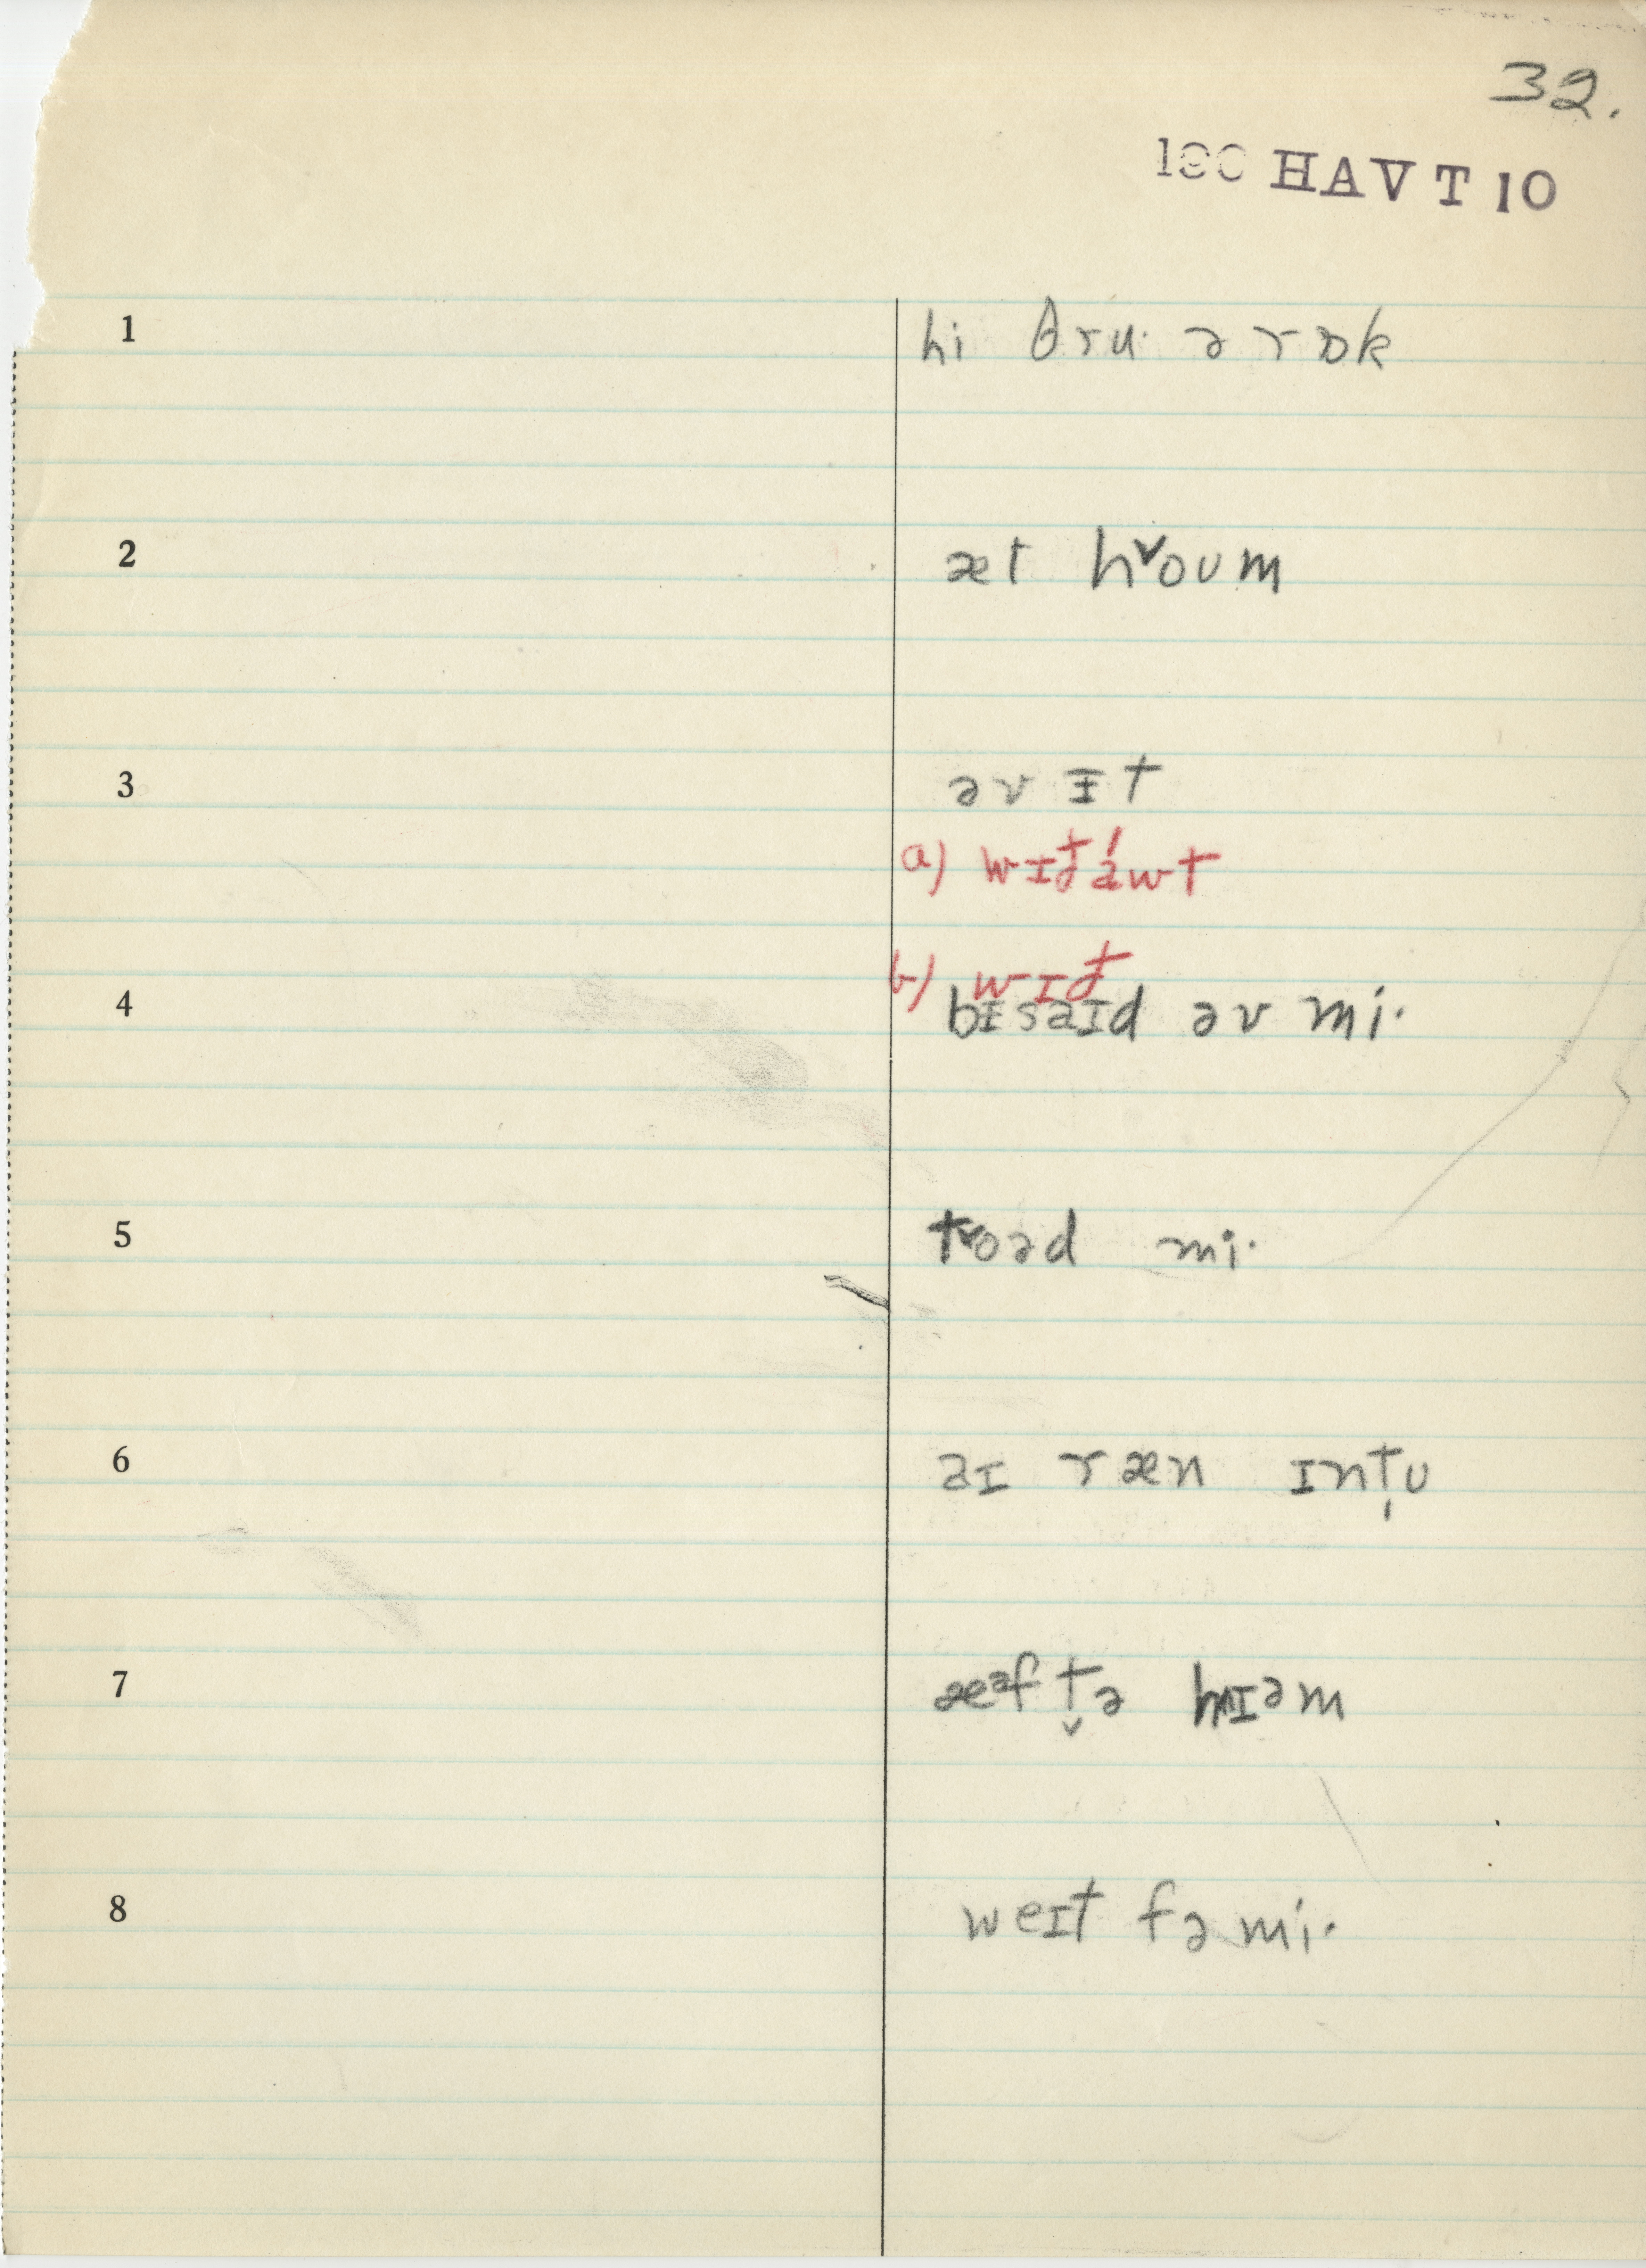 32.
190 HAVT10
1 hi θru· ə rɒk
2 æt hˇoʊm
3 əv ɪ̵t
a) wɪð áwt
b) wɪð
4 bɪ̵saɪd əv mi·
5 tˇoəd mi·
6 aɪ ræn ɪnt̩ʊ
7 æᵊf t̬ə hɪəm
8 weɪt fə mi·